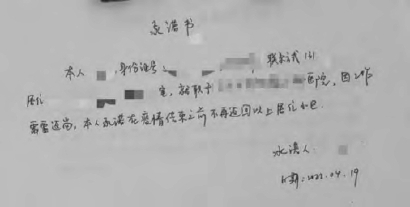 承诺书
本人 ,身份证号 , ,联系方式 131
居住 室,就职于 医院,因工作
需要返岗,本人承诺在疫情结束之前不再返回以上居住小区.
承诺人:
日期:2022.04.19